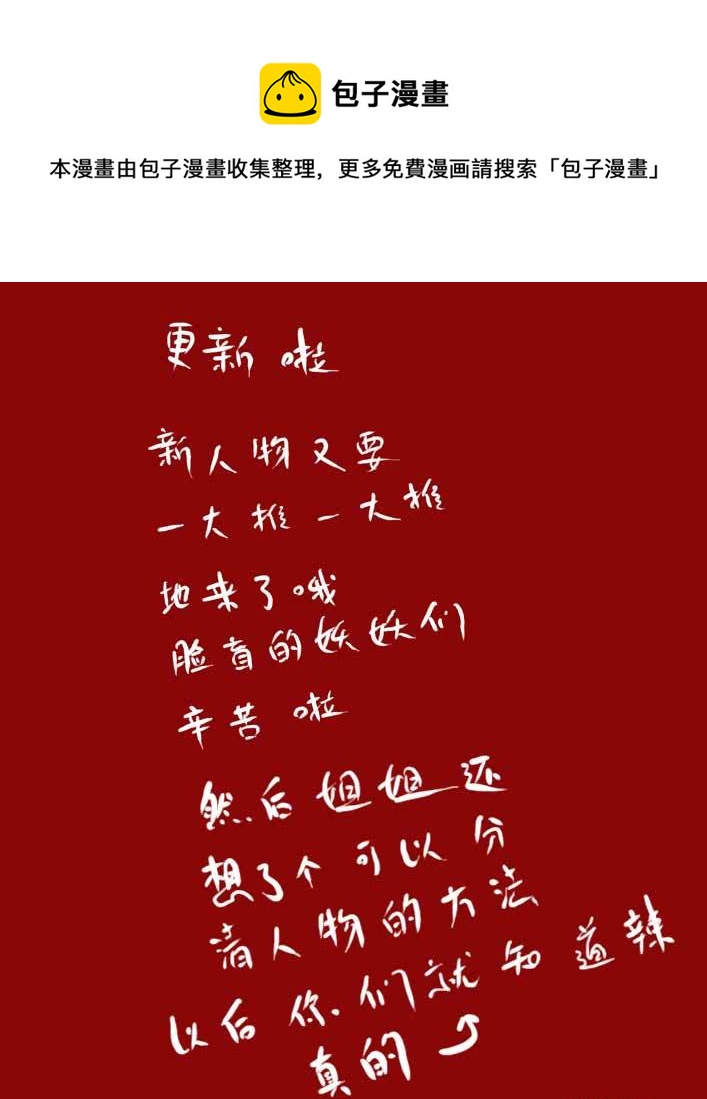 包子漫畫
本漫畫由包子漫畫收集整理，更多免費漫画請搜索「包子漫畫」
更新啦
新人物又要
一大推一大推
地来了哦
脸盲的妖妖们
辛苦啦
然后姐姐还
想了个可以分
清人物的方法
以后你们就知道辣
真的